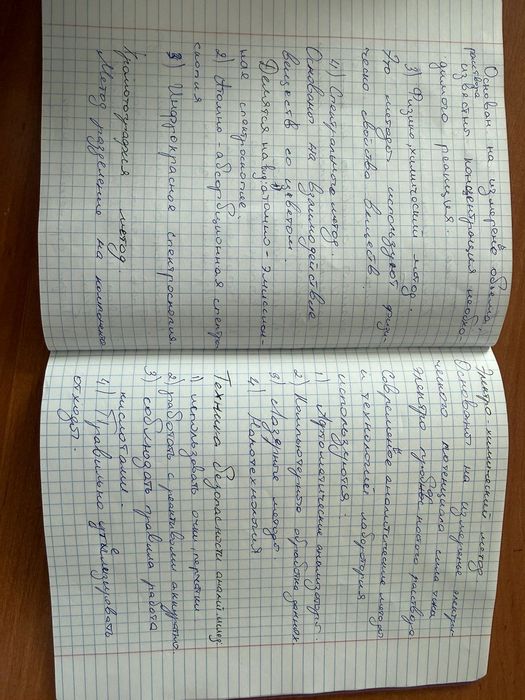 Основан на измерение объема
раствора известной концентрация необхо-
димого реакция.
3) Физико, химический метод.
Это методы используют физи-
ческо свойства веществ.
4) Спектрального метод.
Основаны на взаимодействие
веществ со цветом
Делятся на 1) атомно-эмиссион-
ное спектроскопие.
2) Атомно-абсорбционная спектро
скопия
3) Инфрокрасное спектроскопия.
Хромотография метод
Метод разделение на компоненто
Электро химический метод
Основаны на измерение электри-
ческого потенциала сила тока
электро проводностного раствора.
Современое аналитические методы
и технологие лаборатория
используются:
1) Автоматические анализаторы.
2) Компьютерного обработка данных
3) Лазерные методы
4) Нанотехнология
Техника безопасности
1) использовать очки, перчатки
2) работать с реактивами аккуратно.
3) соблюдать правила работа
кислотами.
4) Правильно утелизировать
отходы.